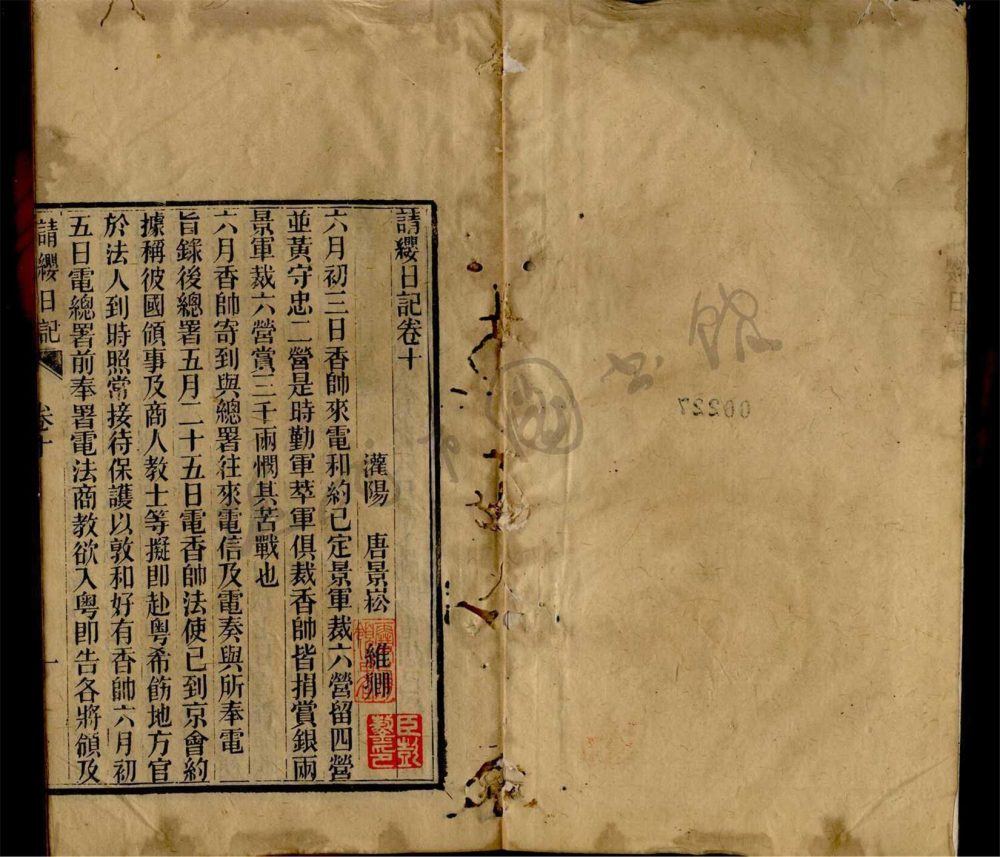 00227
請纓日記卷十
灌陽　唐景崧　維卿
六月初三日香帥來電和約已定景軍裁六營留四營
並黃守忠二營是時勤軍萃軍俱裁香帥皆捐賞銀兩
景軍裁六營賞三千兩憫其苦戰也
六月香帥寄到與總署往來電信及電奏與所奉電
旨錄後總署五月二十五日電香帥法使已到京會約
據稱彼國領事及商人教士等擬即赴粵希飭地方官
於法人到時照常接待保護以敦和好有香帥六月初
五日電總署前奉署電法商教欲入粵即告各將領及
請纓日記　卷十　一